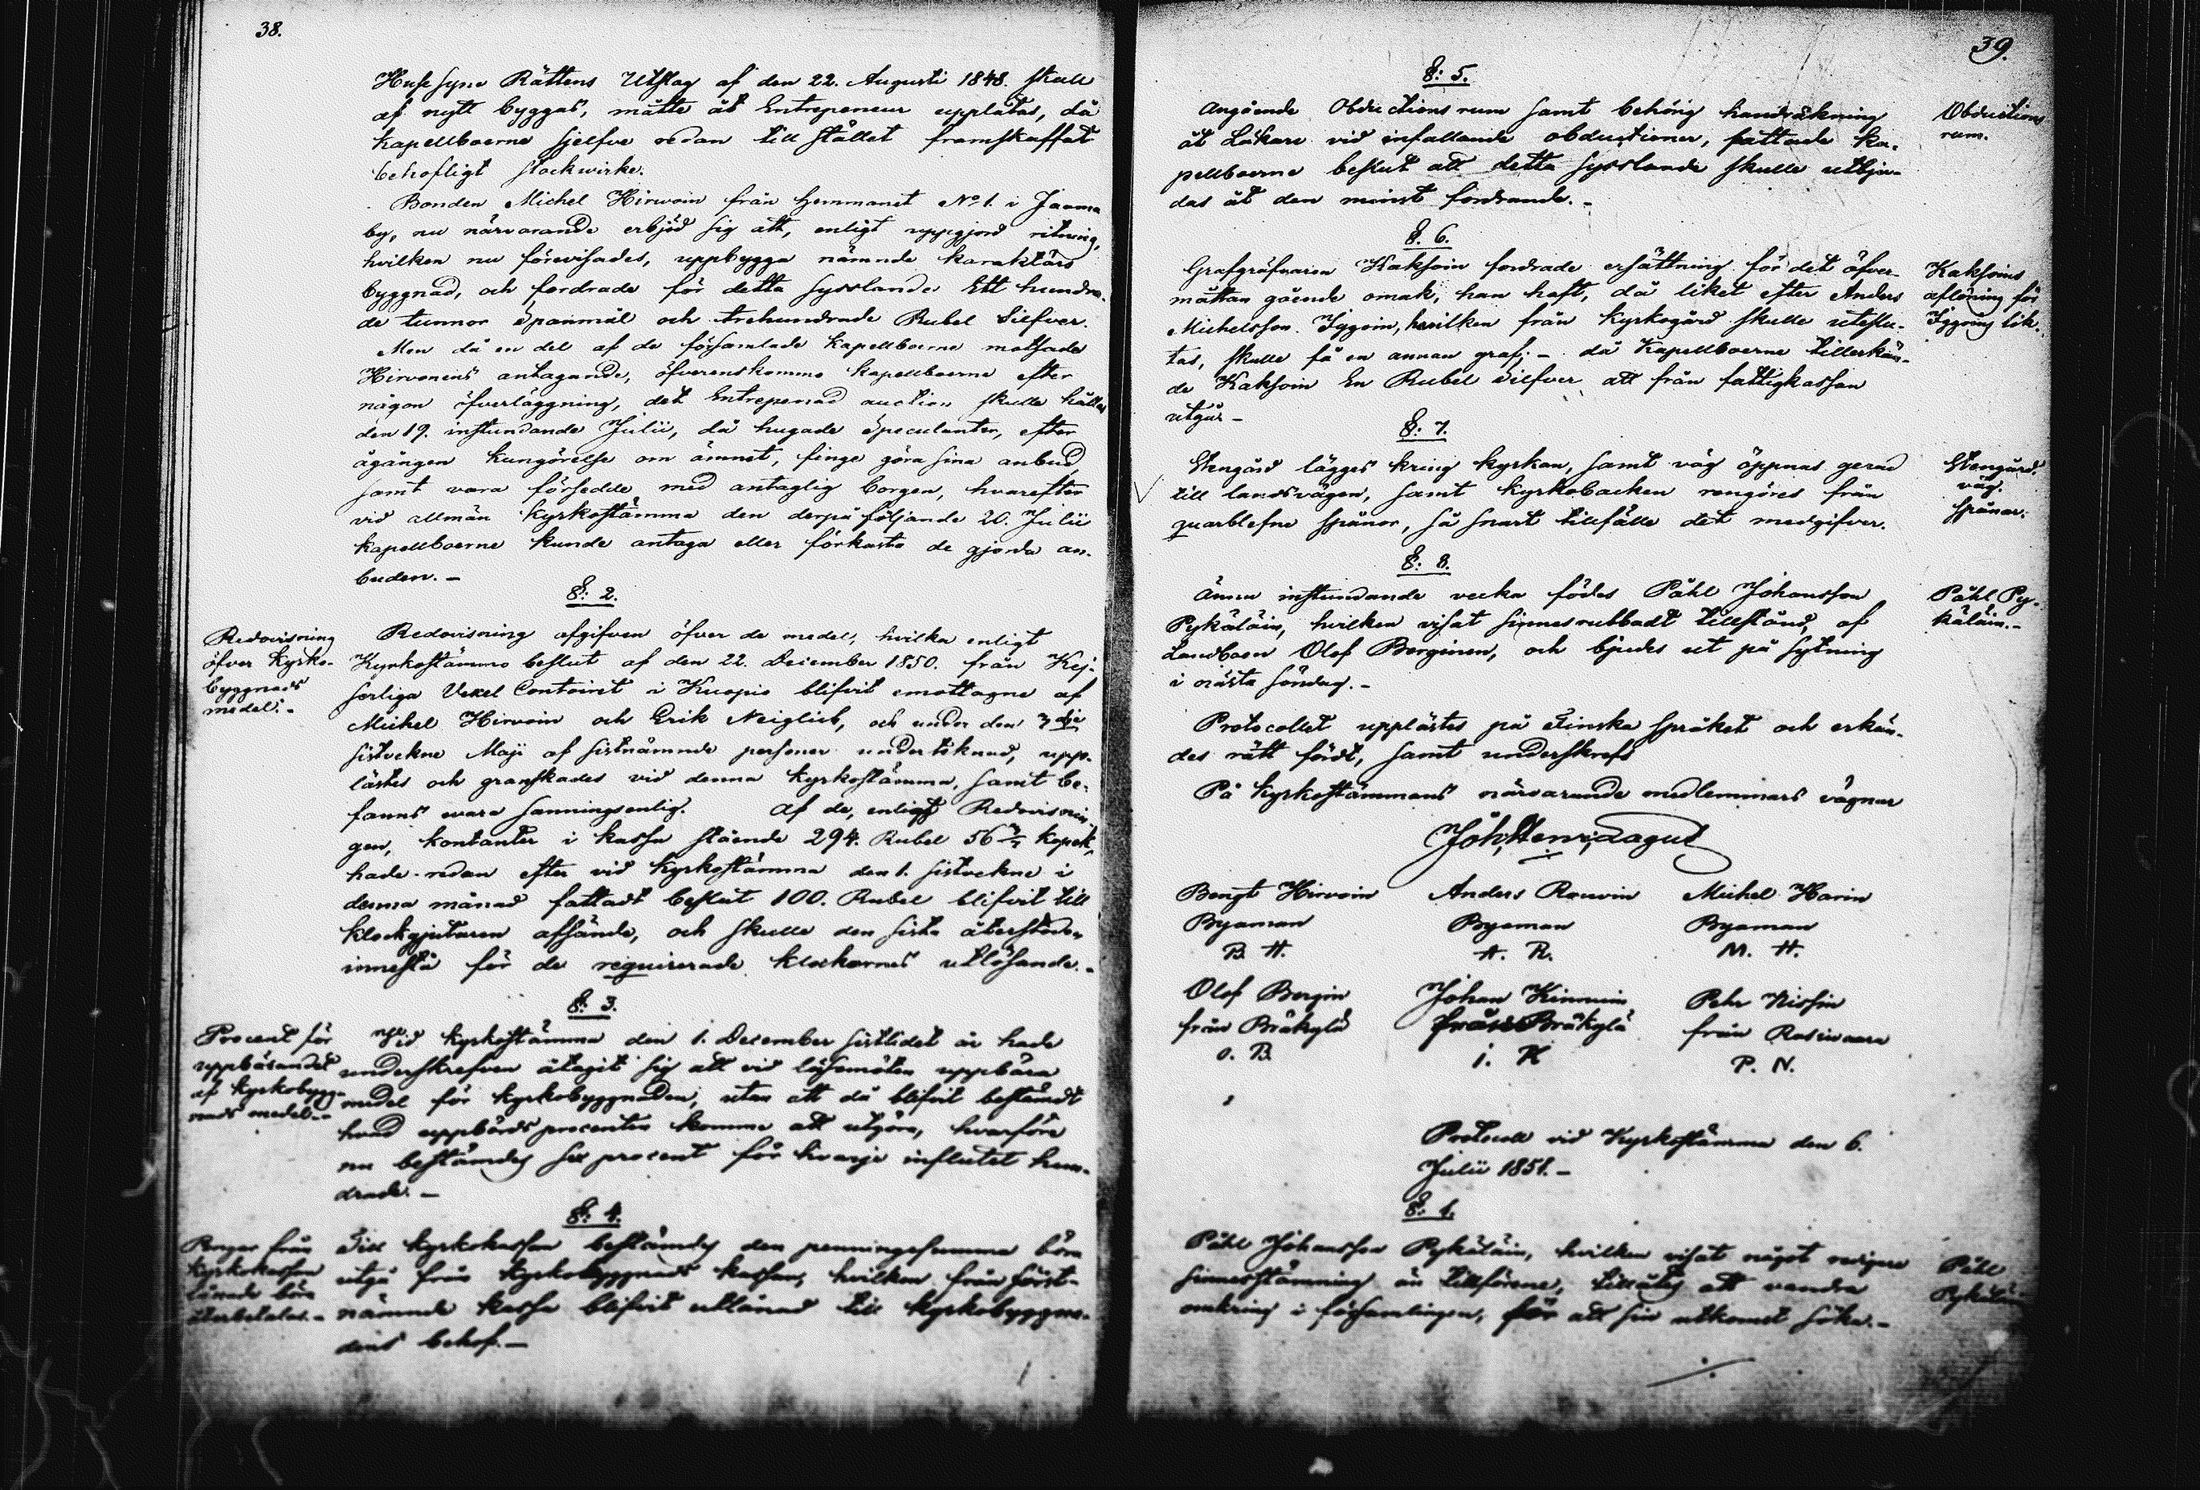 38.
Huse Syns Rättens Utslag af den 22. Augusti 1848. skall
af nytt byggas, måtte åt Entrepeneur upplåtas, då
kapellboerne sjelfve redan till stället framskaffat
behöfligt stockwirke.
Bonden Michel Hirwoin från hemmanet No 1. i Jaama
by, nu närvarande erbjöd sig att, enligt uppgjord ritning,
hvilken nu förevisades, uppbygga nämnde karaktärs
byggnad, och fordrade för detta sysslande Ett hundra-
de tunnor Spanmål och trehundrade Rubel Silfver.
Men då en del af de församlade Kapellboerne motsade
Hirvonens antagande, öfverenskommo kapellboerne efter
någon öfverläggning, det Entrepenad auction skulle hållas
den 19. instundande Julii, då hugade Speculanter, efter
ågången kungörelse om ämnet, finge göra sina anbud
samt vara försedde med antaglig borgen, hvarefter
vid allmän Kyrkostämma den derpå följande 20. Julii
kapellboerne kunde antaga eller förkasta de gjorda an-
buden. –
§: 2.
Redovisning
öfver Kyrko-
byggnads
medel. –
Redovisning afgifven öfver de medel, hvilka enligt
Kyrkostämmo beslut af den 22. December 1850. från Kej-
serliga Vexel Contoiret i Kuopio blifvit emottagne af
Michel Hirvoin och Erik Neiglick, och under den 3dje
sistvekne Maji af sistnämnde personer undertecknad, upp-
lästes och granskades vid denna Kyrkostämma, samt be-
fanns vara sanningsenlig. Af de, enligt Redovisnin-
gen, kontanter i kassa stående 294. Rubel 56 kopek,
hade redan efter vid Kyrkostämma den 1. sistvekne i
denna månad fattadt beslut 100. Rubel blifvit till
klockgjutaren afsände, och skulle den sista återstoden
innestå för de requirerade klockornes utlösande. –
§: 3.
Procent för
uppbärandet
af Kyrkobygg-
nads medel. –
Vid Kyrkostämma den 1. December sistlidet år hade
underskrefven åtagit sig att vid läsemöten uppbära
medel för Kyrkobyggnaden, utan att då blifvit bestämdt
hvad uppbörds procenten komme att utgöra, hvarföre
nu bestämdes sex procent för hvarje influtet hun-
drade. –
§: 4.
Penger från
Kyrkokassan
lånade böra
återbetalas. –
Till Kyrkokassan bestämdes den penningesumma böra
utgå från Kyrkobyggnads kassan, hvilken från först-
nämnde kassa blifvit utlånad till Kyrkobyggna-
dens behof. –
39.
§: 5.
Angående Obductions rum samt behörig handräkning
åt Läkare vid infallande obductioner, fattade ka-
pellboerne beslut att detta sysslande skulle utbju-
das åt den minst fordrande. –
Obductions
rum.
§. 6.
Grafgräfvaren Kaksoin fordrade ersättning för det öfver-
måttan gående omak, han haft, då liket efter Anders
Michelsson Iggoin, hvilken från Kyrkogård skulle uteslu-
tas, skulle få en annan graf; – då Kapellboerne tillerkän-
de Kaksoin En Rubel Silfver att från fattigkassan
utgår –
Kaksoins
aflöning för
Iggoins lik.
§: 7.
Stengård lägges kring kyrkan, samt väg öppnas gerad
till landsvägen, samt Kyrkobacken rengöres från
quarblefne spånor, så snart tillfälle det medgifver.
Stengård.
väg.
spånor.
§: 8.
Ännu instundande vecka födes Påhl Johansson
Pykäläin, hvilken visat sinnesrubbadt tillstånd, af
Landboen Olof Berginen, och bjudes ut på sytning
i nästa söndag. –
Påhl Py-
käläin. –
Protocollet upplästes på Finska Språket och erkän-
des rätt fördt, samt underskrefs
På Kyrkostämmans närvarande medlemmars vägnar
Joh. Henr. Lagus
Bengt Hirvoin
Byaman
B. H.
Anders Rouvin
Byaman
A. R.
Michel Harin
Byaman
M. H.
Olof Bergin
från Bräkylä
O. B.
Johan Kinnuin
från Bräkylä
J. K
Pehr Nissin
från Rasiwaara
P. N.
Protocoll vid Kyrkostämma den 6.
Julii 1851. –
§: 1.
Påhl Johansson Pykäläin, hvilken visat något redigare
sinnesstämning än tillförene, tillåtes att vandra
omkring i församlingen, för att sin utkomst söka. –
Påhl
Pykäläin